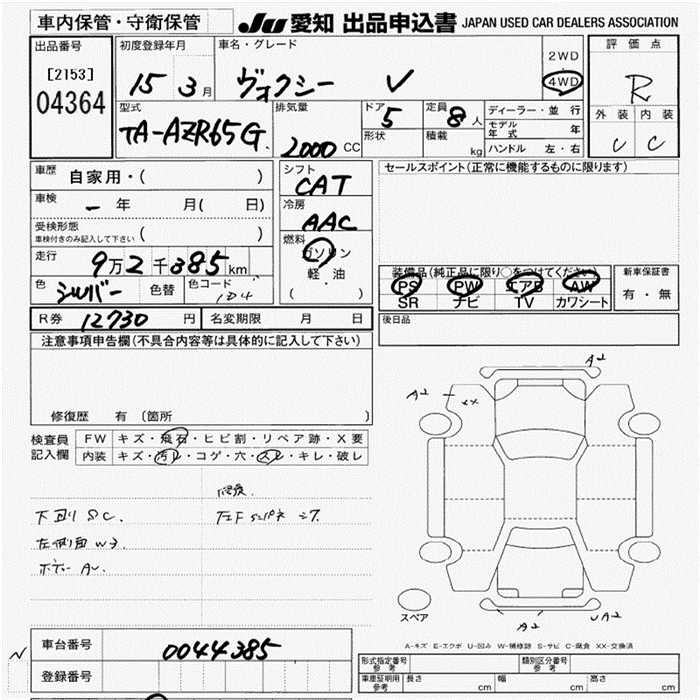 車内保管・守衛保管 JU 愛知 出品申込書 JAPAN USED CAR DEALERS ASSOCIATION
出品番号 初度登録年月 車名・グレード 2WD 評価点
[2153] 15 3月 ヴォクシー V 4WD R
04364 型式 排気量 ドア 5 定員 8人 ディーラー・並行 外装 内装
TA-AZR65G 2000CC 形状 積載 kg モデル年式 年 C C
ハンドル 左・右
車歴 自家用・( ) シフト CAT セールスポイント(正常に機能するものに限ります)
車検 ー年 月( 日) 冷房 AAC
受検形態 車検付きのみ記入して下さい ( ) 燃料 ガソリン
走行 9万2千385km 軽・油 装備品(純正品に限り○をつけてください) 新車保証書
色 シルバー 色替 色コード 1D4 ( ) PS PW エアB AW 有・無
SR ナビ TV カワシート
R券 12730円 名変期限 月 日 後日品
注意事項申告欄(不具合内容等は具体的に記入して下さい)
A2
A2 XX
修復歴 有 (箇所 )
検査員 FW キズ・飛石・ヒビ割・リペア跡・X要
記入欄 内装 キズ・汚レ・コゲ・穴・スレ・キレ・破レ
修復.
下回り SC.
左側面 W3
ボデー AU.
スペア A2 UA2
A-キズ E-エクボ U-凹み W-補修跡 S-サビ C-腐食 XX-交換済
車台番号 0044385 型式指定番号 参考 類別区分番号 参考
N 登録番号 車庫証明用 参考 長さ cm 幅 cm 高さ cm